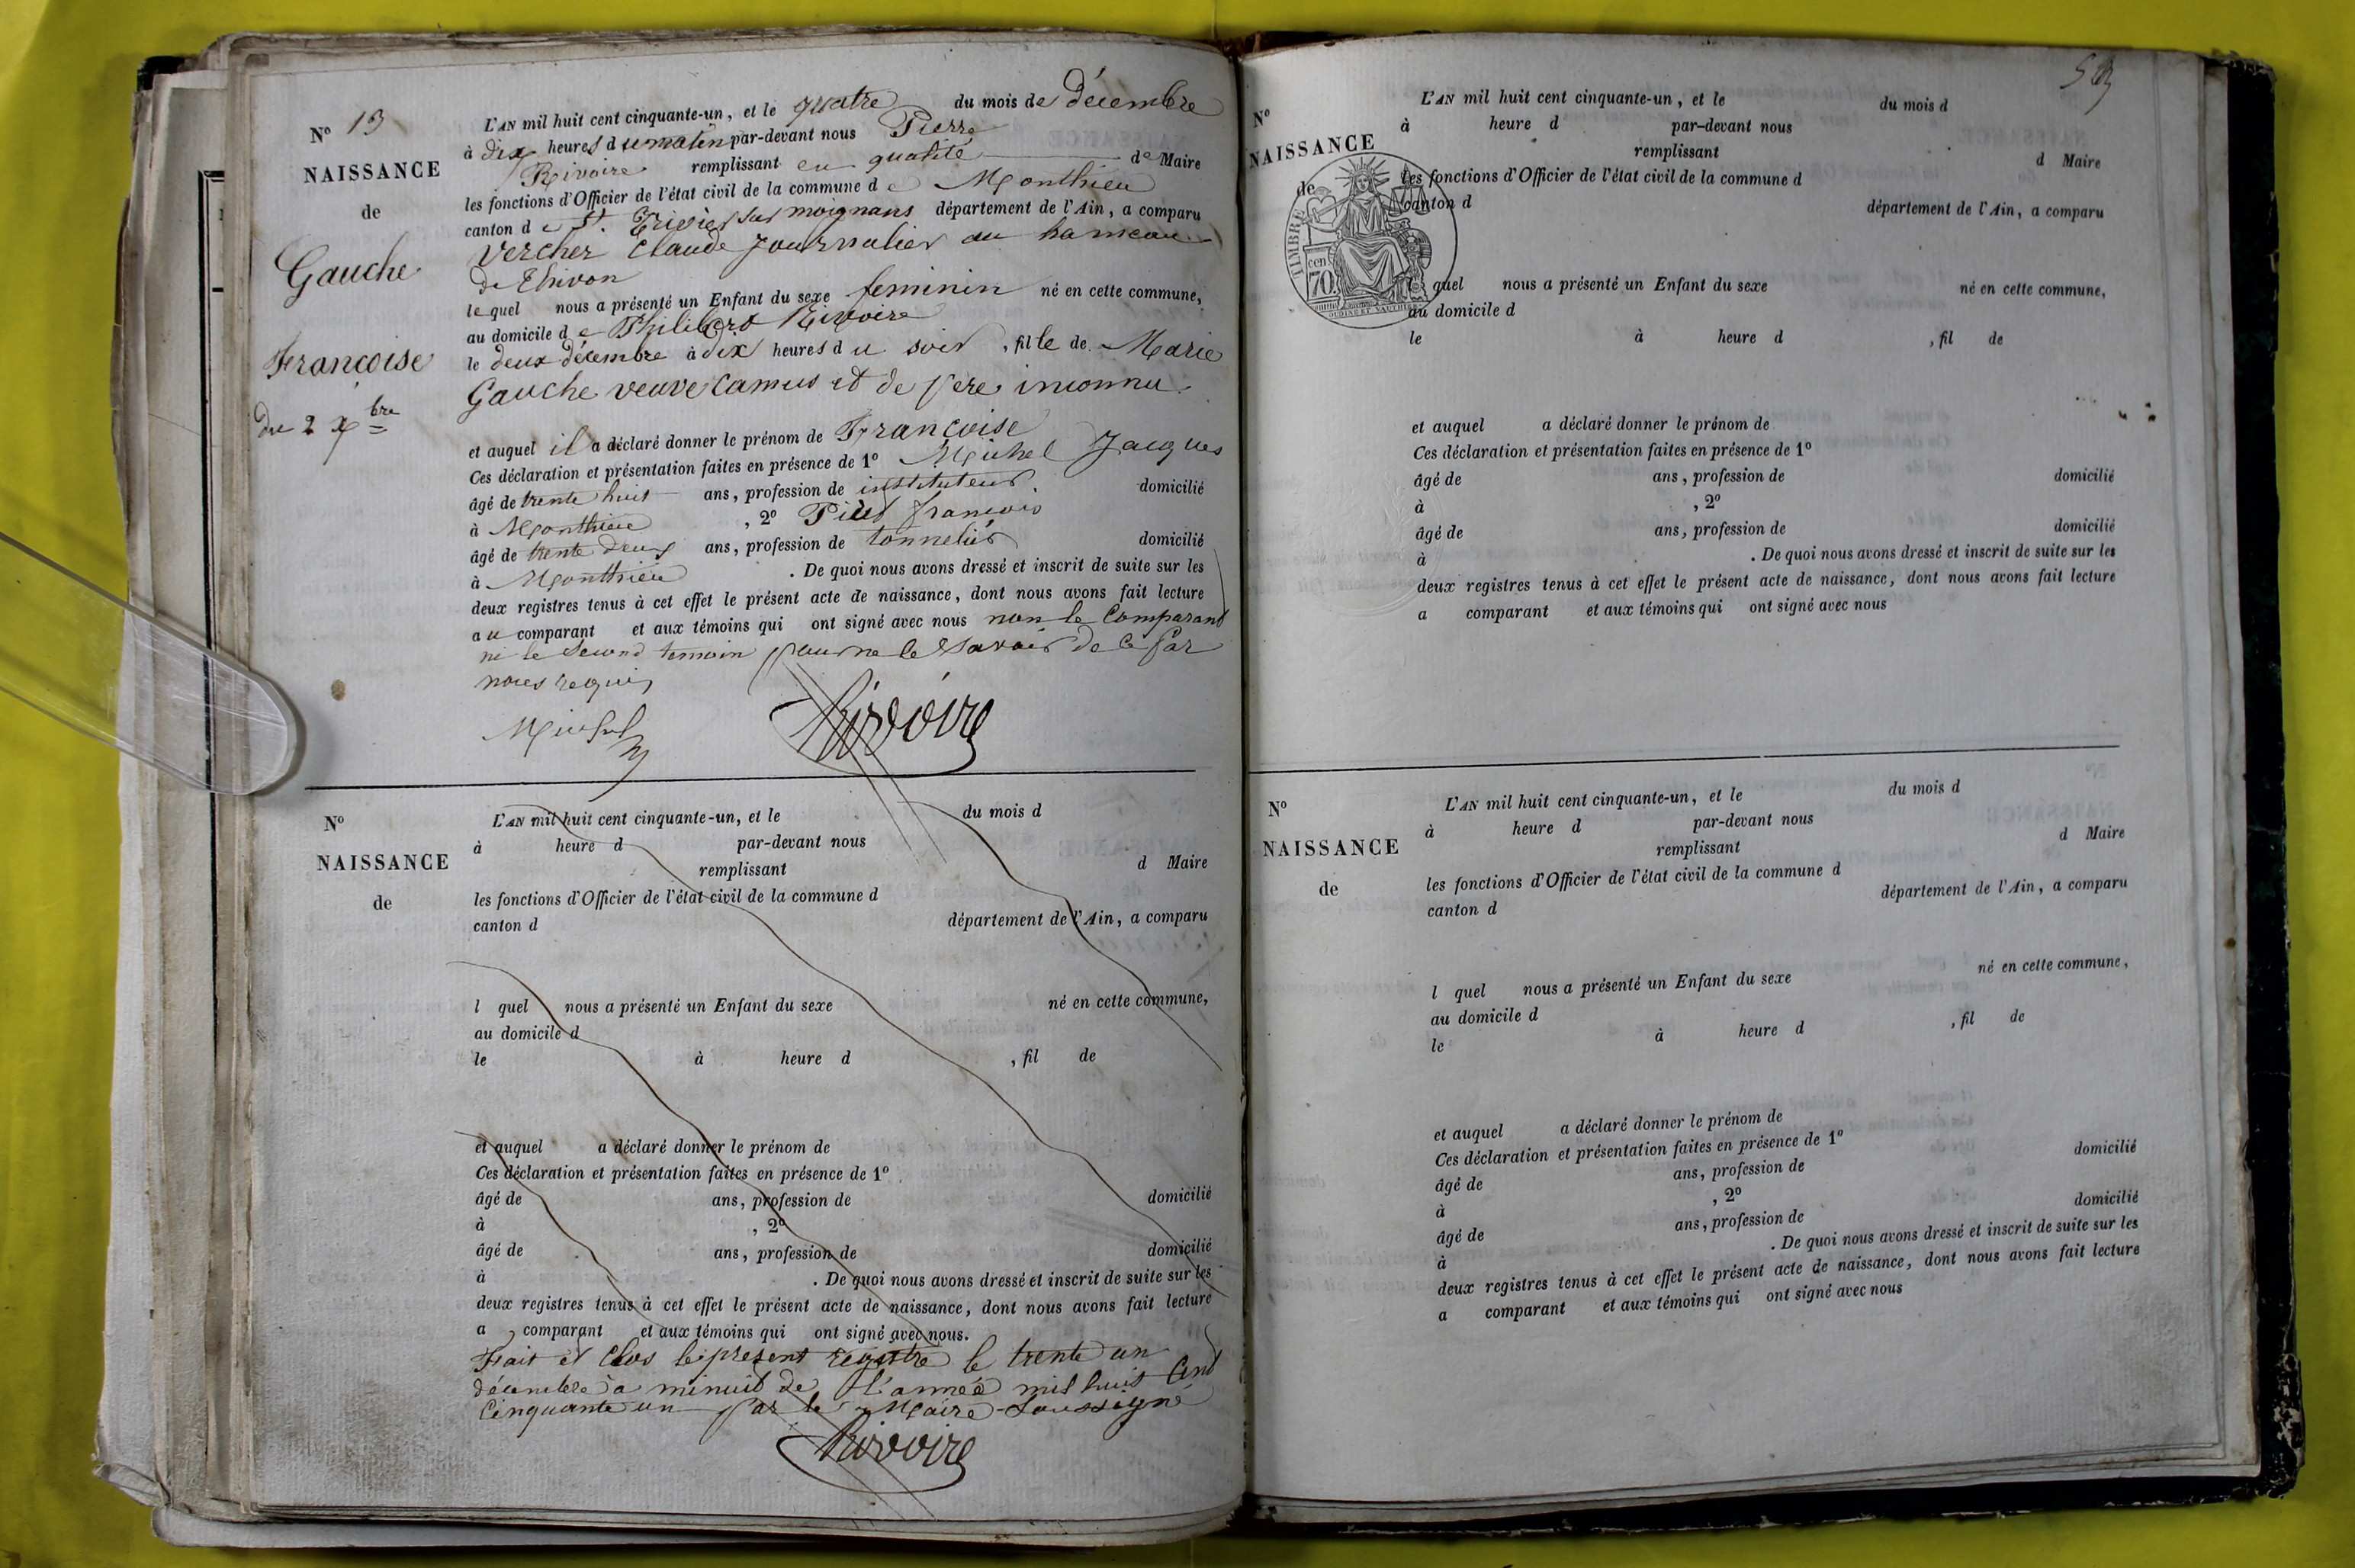 N° 13
NAISSANCE
de
Gauche
Françoise
du 2 xbre
L'AN mil huit cent cinquante-un, et le quatre du mois de décembre
à dix heures du matin par-devant nous Pierre
Rivoire remplissant en qualité de Maire
les fonctions d'Officier de l'état civil de la commune de Monthieu
canton de St. Trivier sur moignans département de l'Ain, a comparu
Vercher Claude journalier au hameau
de Thivon
lequel nous a présenté un Enfant du sexe feminin né en cette commune,
au domicile de Philibert Rivoire
le deux décembre à dix heures du soir, fille de Marie
Gauche veuve Camus et de père inconnu
et auquel il a déclaré donner le prénom de Françoise
Ces déclaration et présentation faites en présence de 1° Michel Jacques
âgé de trente huit ans, profession de instituteur domicilié
à Monthieu, 2° François
âgé de trente deux ans, profession de tonnelier domicilié
à Monthieu. De quoi nous avons dressé et inscrit de suite sur les
deux registres tenus à cet effet le présent acte de naissance, dont nous avons fait lecture
au comparant et aux témoins qui ont signé avec nous non le Comparant
ni le second temoin pour ne le savoir de ce par
nous requis
Michel
Rivoire
N°
NAISSANCE
de
L'AN mil huit cent cinquante-un, et le du mois d
à heure d par-devant nous
remplissant d Maire
les fonctions d'Officier de l'état civil de la commune d
canton d département de l'Ain, a comparu
l quel nous a présenté un Enfant du sexe né en cette commune,
au domicile d
le à heure d , fil de
et auquel a déclaré donner le prénom de
Ces déclaration et présentation faites en présence de 1°
âgé de ans, profession de domicilié
à , 2°
âgé de ans, profession de domicilié
à . De quoi nous avons dressé et inscrit de suite sur les
deux registres tenus à cet effet le présent acte de naissance, dont nous avons fait lecture
a comparant et aux témoins qui ont signé avec nous.
Fait et Clos le present registre le trente un
décembre à minuit de l'année mil huit Cent
Cinquante un par le Maire soussigné
Rivoire
N°
NAISSANCE
de
TIMBRE
70 cen
L'AN mil huit cent cinquante-un, et le du mois d
à heure d par-devant nous
remplissant d Maire
les fonctions d'Officier de l'état civil de la commune d
canton d département de l'Ain, a comparu
l quel nous a présenté un Enfant du sexe né en cette commune,
au domicile d
le à heure d , fil de
et auquel a déclaré donner le prénom de
Ces déclaration et présentation faites en présence de 1°
âgé de ans, profession de domicilié
à , 2°
âgé de ans, profession de domicilié
à . De quoi nous avons dressé et inscrit de suite sur les
deux registres tenus à cet effet le présent acte de naissance, dont nous avons fait lecture
a comparant et aux témoins qui ont signé avec nous
N°
NAISSANCE
de
L'AN mil huit cent cinquante-un, et le du mois d
à heure d par-devant nous
remplissant d Maire
les fonctions d'Officier de l'état civil de la commune d
canton d département de l'Ain, a comparu
l quel nous a présenté un Enfant du sexe né en cette commune,
au domicile d
le à heure d , fil de
et auquel a déclaré donner le prénom de
Ces déclaration et présentation faites en présence de 1°
âgé de ans, profession de domicilié
à , 2°
âgé de ans, profession de domicilié
à . De quoi nous avons dressé et inscrit de suite sur les
deux registres tenus à cet effet le présent acte de naissance, dont nous avons fait lecture
a comparant et aux témoins qui ont signé avec nous